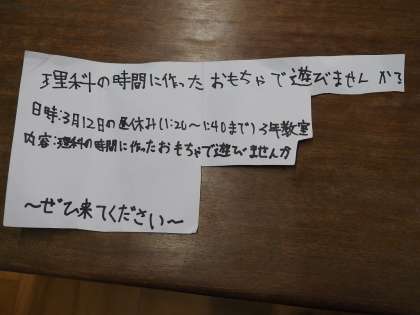 理科の時間に作ったおもちゃで遊びませんか?
日時:3月12日の昼休み(1:20〜1:40まで)3年教室
内容:理科の時間に作ったおもちゃで遊びませんか
〜ぜひ来てください〜